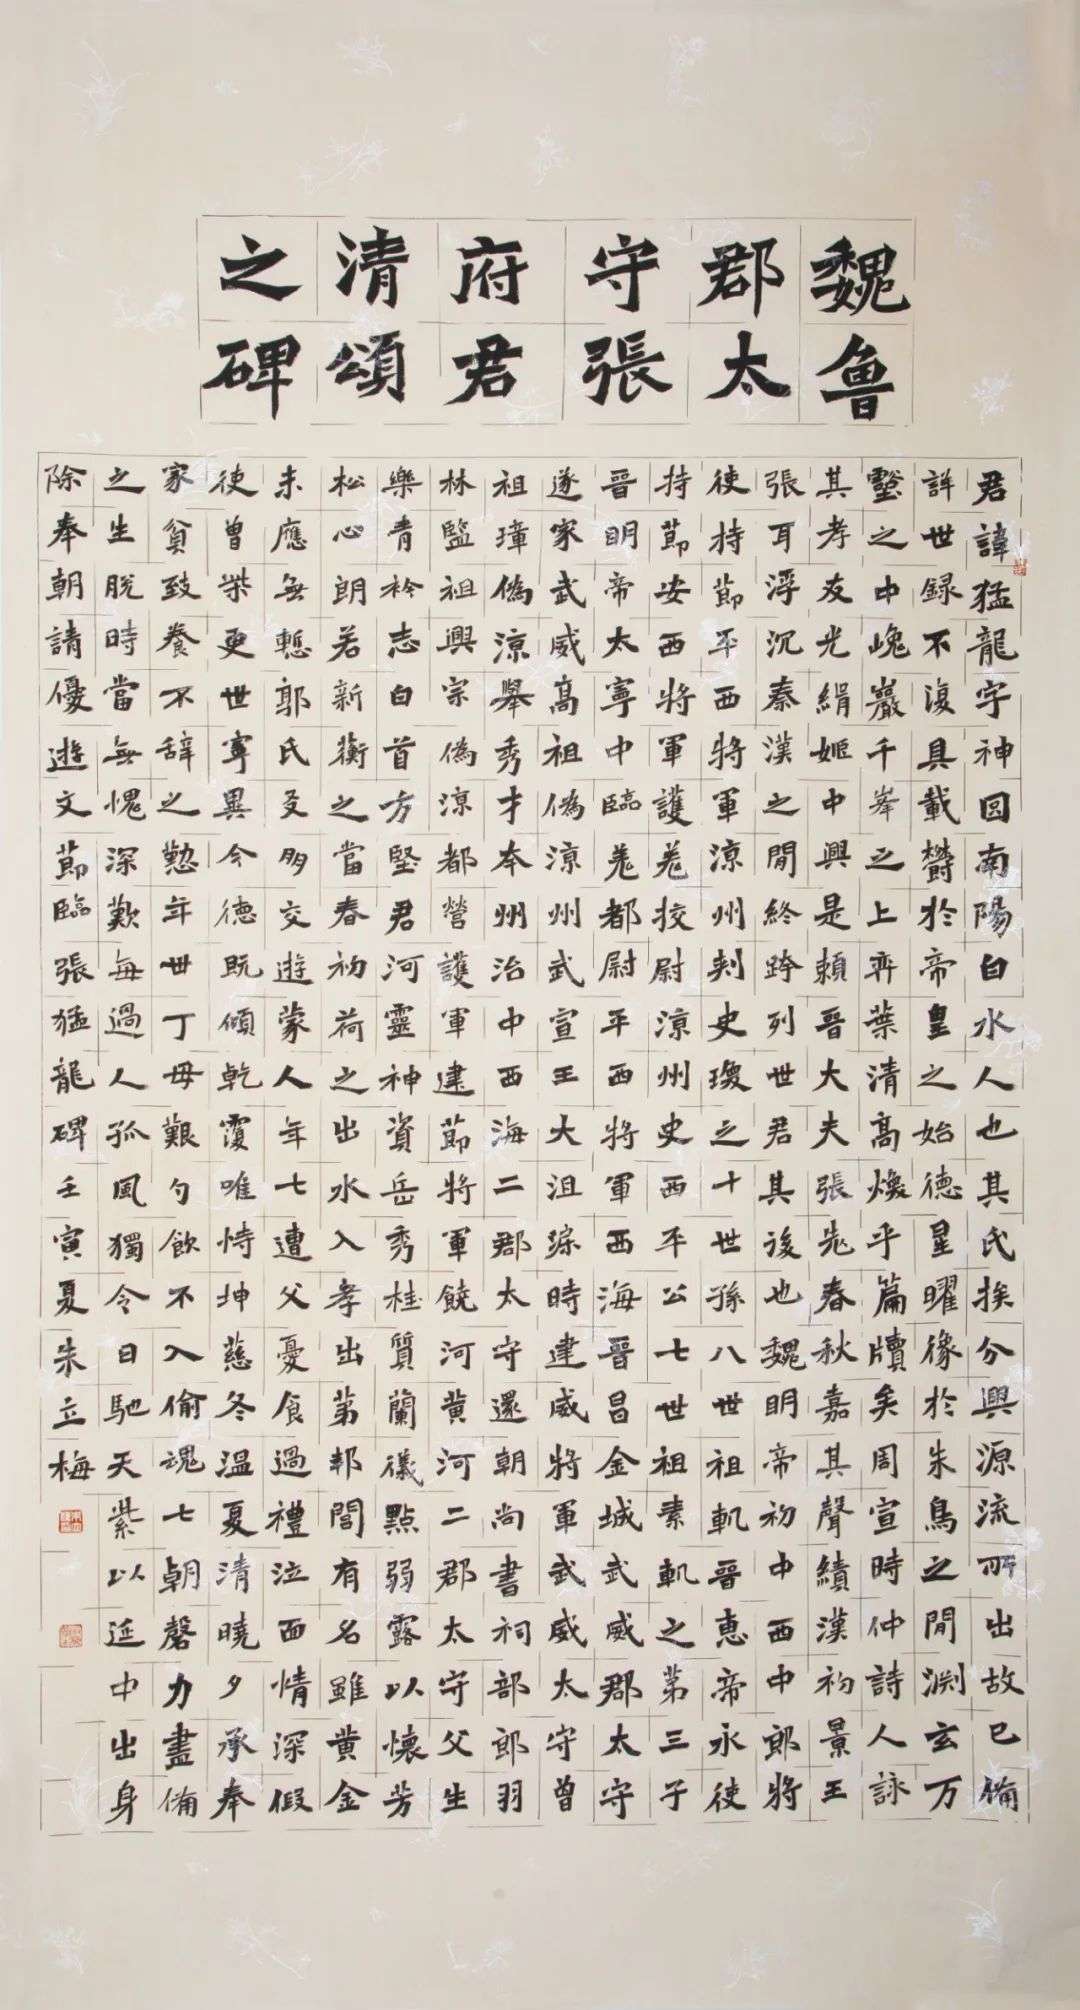 魏魯
郡太
守張
府君
清頌
之碑
君諱猛龍字神囧南陽白水人也其氏族分興源流所出故已備
詳世録不復具載欝於帝皇之始德星曜像於朱鳥之閒渊玄万
壑之中巉巖千峯之上弈葉清高煥乎篇牘矣周宣時仲詩人詠
其孝友光緝姬中興是賴晉大夫張老春秋嘉其聲績漢初景王
張耳浮沉秦漢之閒終跨列世君其後也魏明帝初中西中郎將
使持節平西將軍涼州刾史瓊之十世孫八世祖軌晉惠帝永使
持節安西將軍護羌挍尉涼州史西平公七世祖素軌之第三子
晉明帝太寧中臨羌都尉平西將軍西海晉昌金城武威郡太守
遂家武威高祖偽涼州武宣王大沮渠時建威將軍武威太守曾
祖璋偽涼舉秀才本州治中西海二郡太守還朝尚書祠部郎羽
林監祖興宗偽涼都營護軍建節將軍饒河黄河二郡太守父生
樂青衿志白首方堅君河靈神資岳秀桂質蘭儀點弱露以懷芳
松心朗若新蘅之當春初荷之出水入孝出第邦閭有名雖黄金
未應無慙郭氏友朋交遊蒙人年七遭父憂食過禮泣面情深假
使曾柴更世寧異今德既傾乾覆唯恃坤慈冬温夏清曉夕承奉
家貧致養不辭之懃年丗丁母艱勺飲不入偷魂七朝磬力盡備
之生脱時當無愧深歎每過人孤風獨令日馳天紫以延中出身
除奉朝請優遊文節臨張猛龍碑壬寅夏朱立梅